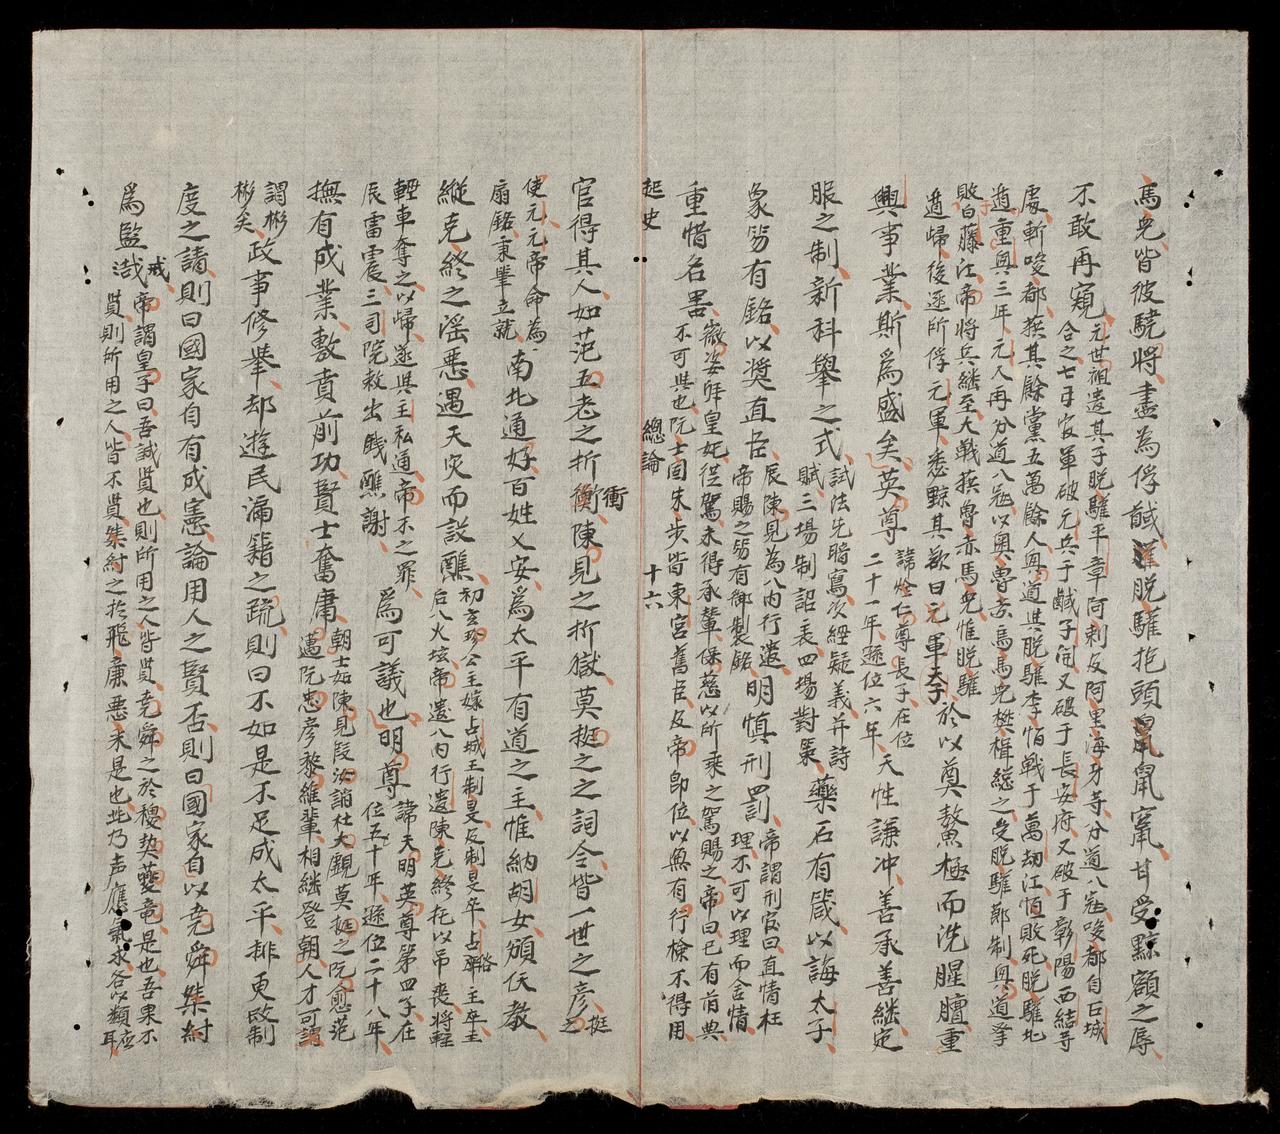 馬兒皆彼驍將盡為俘馘洋脫驩抱頭鼠竄甘受黥額之辱
不敢再窺元世祖遣其子脫驩平章阿剌及阿里海牙等分道入寇唆都自占城
合之七月官軍破元兵于鹹子関又破于長安府又破于彰陽西結等
處斬唆都獲其餘黨五萬餘人興道與脫驩李恒戰于萬劫江恒敗死脫驩北
遁重興三年元人再分道入寇以奧魯赤烏馬兒樊楫總之受脫驩節制興道等
敗白藤江帝將兵繼至大戰獲魯赤馬兒惟脫驩
遁歸後逐所俘元軍悉黥其款曰元軍於以奠鰲極而洗腥膻重
興事業斯爲盛矣英尊諱烇仁尊長子在位
二十一年遜位六年天性謙冲善承善繼定
服之制新科舉之式試法先暗寫次經疑義并詩
賦三場制詔表四場對策藥石有箴以誨太子
象笏有銘以奬直臣辰陳見為八內行遣
帝賜之笏有御製銘明慎刑罰帝謂刑官曰直情枉
理不可以理而舍情
重惜名器徽姿皇妃從駕未得承輦保慈以所乘之駕賜之帝曰已有首典
不可與也阮士固朱步皆東宮舊臣及帝卽位以無有行檢不得用
越史 總論 十六
官得其人如范五老之折衝陳見之折獄莫挺之之詞令皆一世之彦挺之
使元元帝命為
扇銘秉筆立就南北通好百姓乂安爲太平有道之主惟納胡女頒仸教
縱克終之滛惡遇天災而設醮初玄珍公主嫁占城王制旻及制旻卒占俗主卒主
后入火坛帝遣入內行遣陳克終托以吊喪將輕
輕車奪之以歸遂與主私通帝不之罪
辰雷震三司院救出餞醮謝爲可議也明尊諱天明英尊第四子在
位五十年遜位二十八年
撫有成業敷賁前功賢士奮庸朝士如陳見段汝諧杜天覷莫挺之阮愈范
遇阮忠彦黎維輩相繼登朝人才可謂
謂彬
彬矣政事修舉却遊民漏籍之疏則曰不如是不足成太平排更改制
度之請則曰國家自有成憲論用人之賢否則曰國家自以堯舜桀紂
爲監戒哉帝謂皇子曰吾誠賢也則所用之人皆賢堯舜之於稷契夔龍是也吾果不
賢則所用之人皆不賢桀紂之於飛廉惡來是也此乃声應氣求各以類應耳